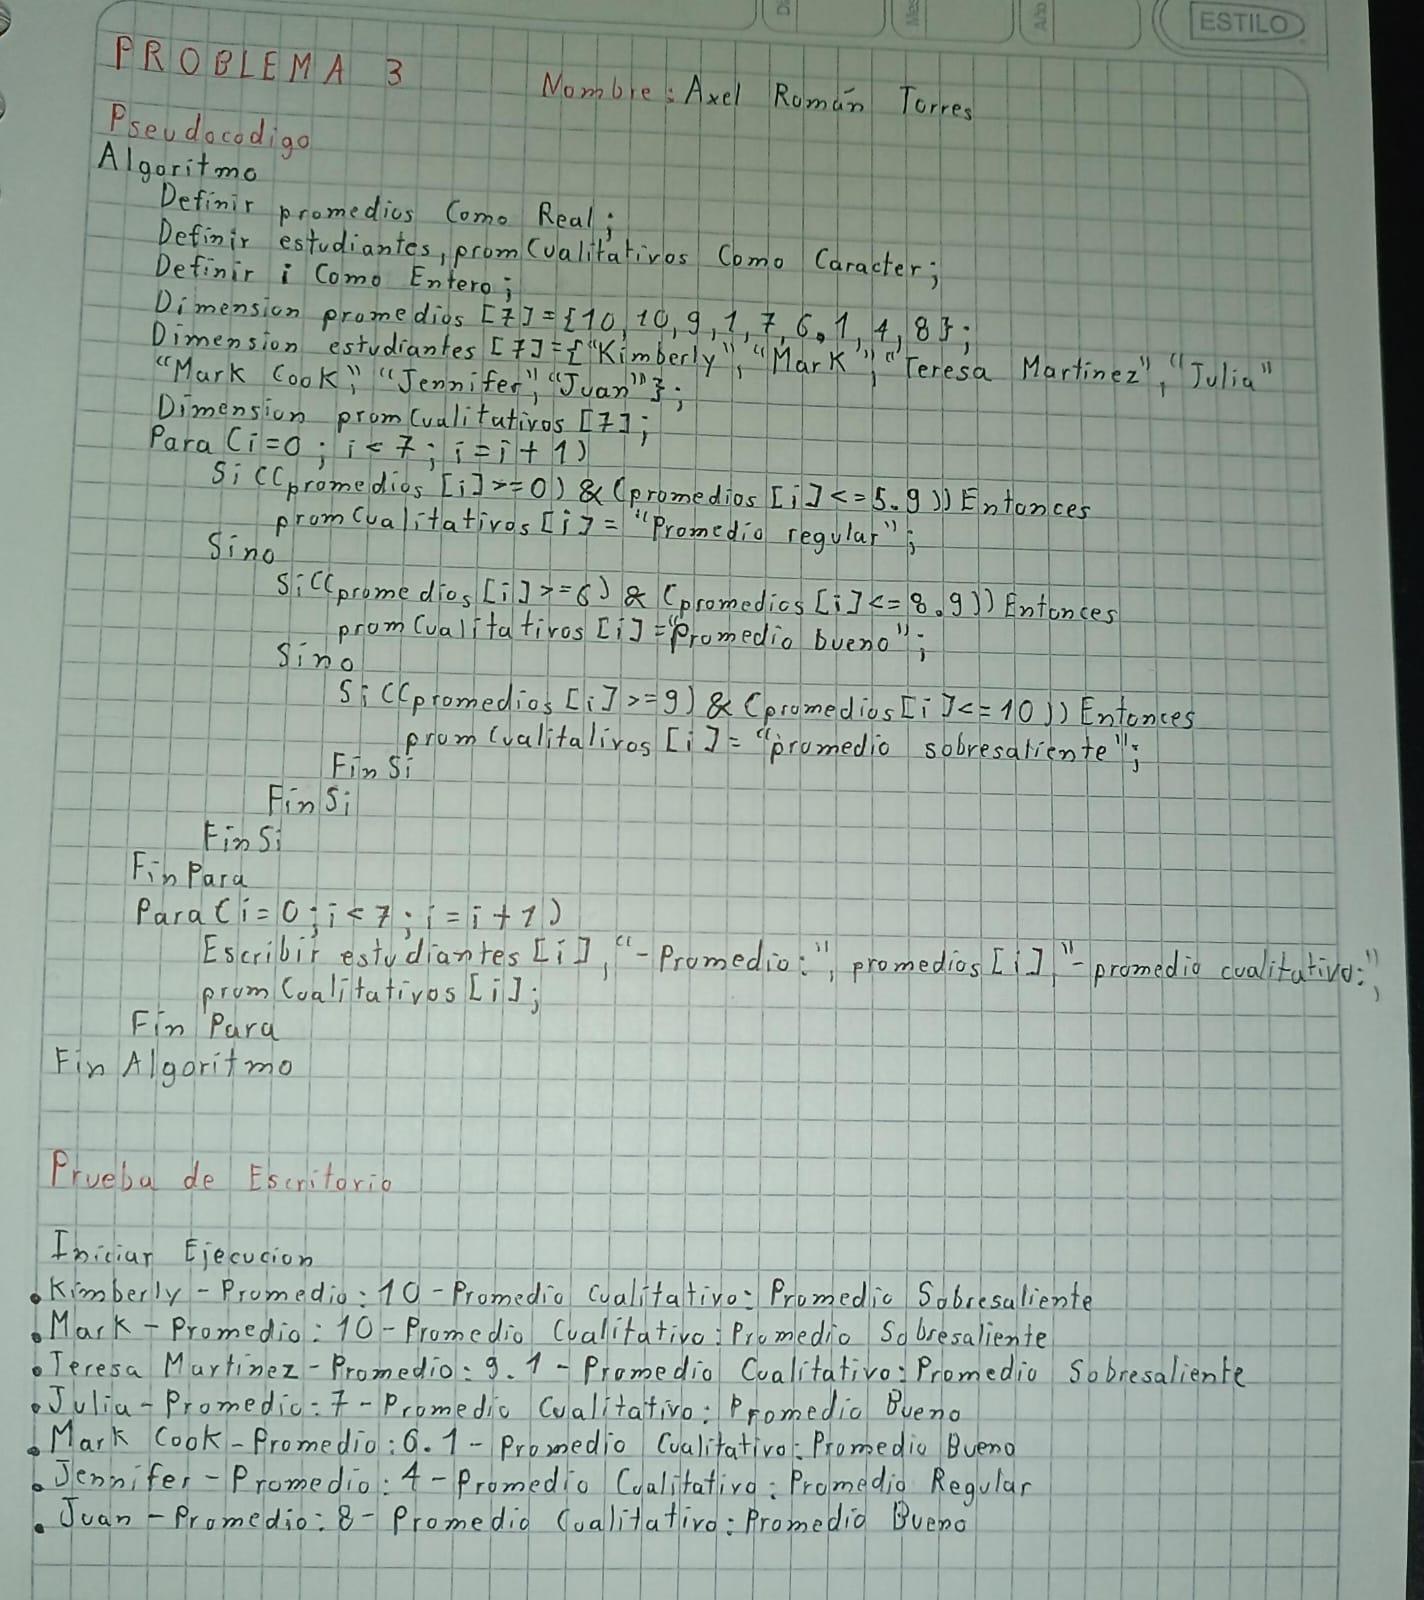 Día
Mes
Año
ESTILO
PROBLEMA 3
Nombre: Axel Román Torres
Pseudocodigo
Algoritmo
Definir promedios Como Real;
Definir estudiantes, promCualitativos Como Caracter;
Definir i Como Entero;
Dimension promedios [7]={10,10,9,1,7,6.1,4,8};
Dimension estudiantes [7]={"Kimberly", "Mark", "Teresa Martinez", "Julia"
"Mark Cook", "Jennifer", "Juan"};
Dimension promCualitativos [7];
Para (i=0; i<7; i=i+1)
Si ((promedios [i]>=0) & (promedios [i]<=5.9)) Entonces
promCualitativos [i] = "Promedio regular";
Sino
Si((promedios [i]>=6) & (promedios [i]<=8.9)) Entonces
promCualitativos [i] ="Promedio bueno";
Sino
Si ((promedios [i]>=9) & (promedios [i]<=10)) Entonces
promCualitativos [i] = "promedio sobresaliente";
Fin Si
Fin Si
Fin Si
Fin Para
Para (i=0; i<7; i=i+1)
Escribir estudiantes [i], "-Promedio:", promedios [i], "-promedio cualitativo:",
promCualitativos [i];
Fin Para
Fin Algoritmo
Prueba de Escritorio
Iniciar Ejecucion
• Kimberly - Promedio: 10 - Promedio Cualitativo: Promedio Sobresaliente
• Mark - Promedio: 10 - Promedio Cualitativo: Promedio Sobresaliente
• Teresa Martinez - Promedio: 9.1 - Promedio Cualitativo: Promedio Sobresaliente
• Julia - Promedio: 7 - Promedio Cualitativo: Promedio Bueno
• Mark Cook - Promedio: 6.1 - Promedio Cualitativo: Promedio Bueno
• Jennifer - Promedio: 4 - Promedio Cualitativo: Promedio Regular
• Juan - Promedio: 8 - Promedio Cualitativo: Promedio Bueno